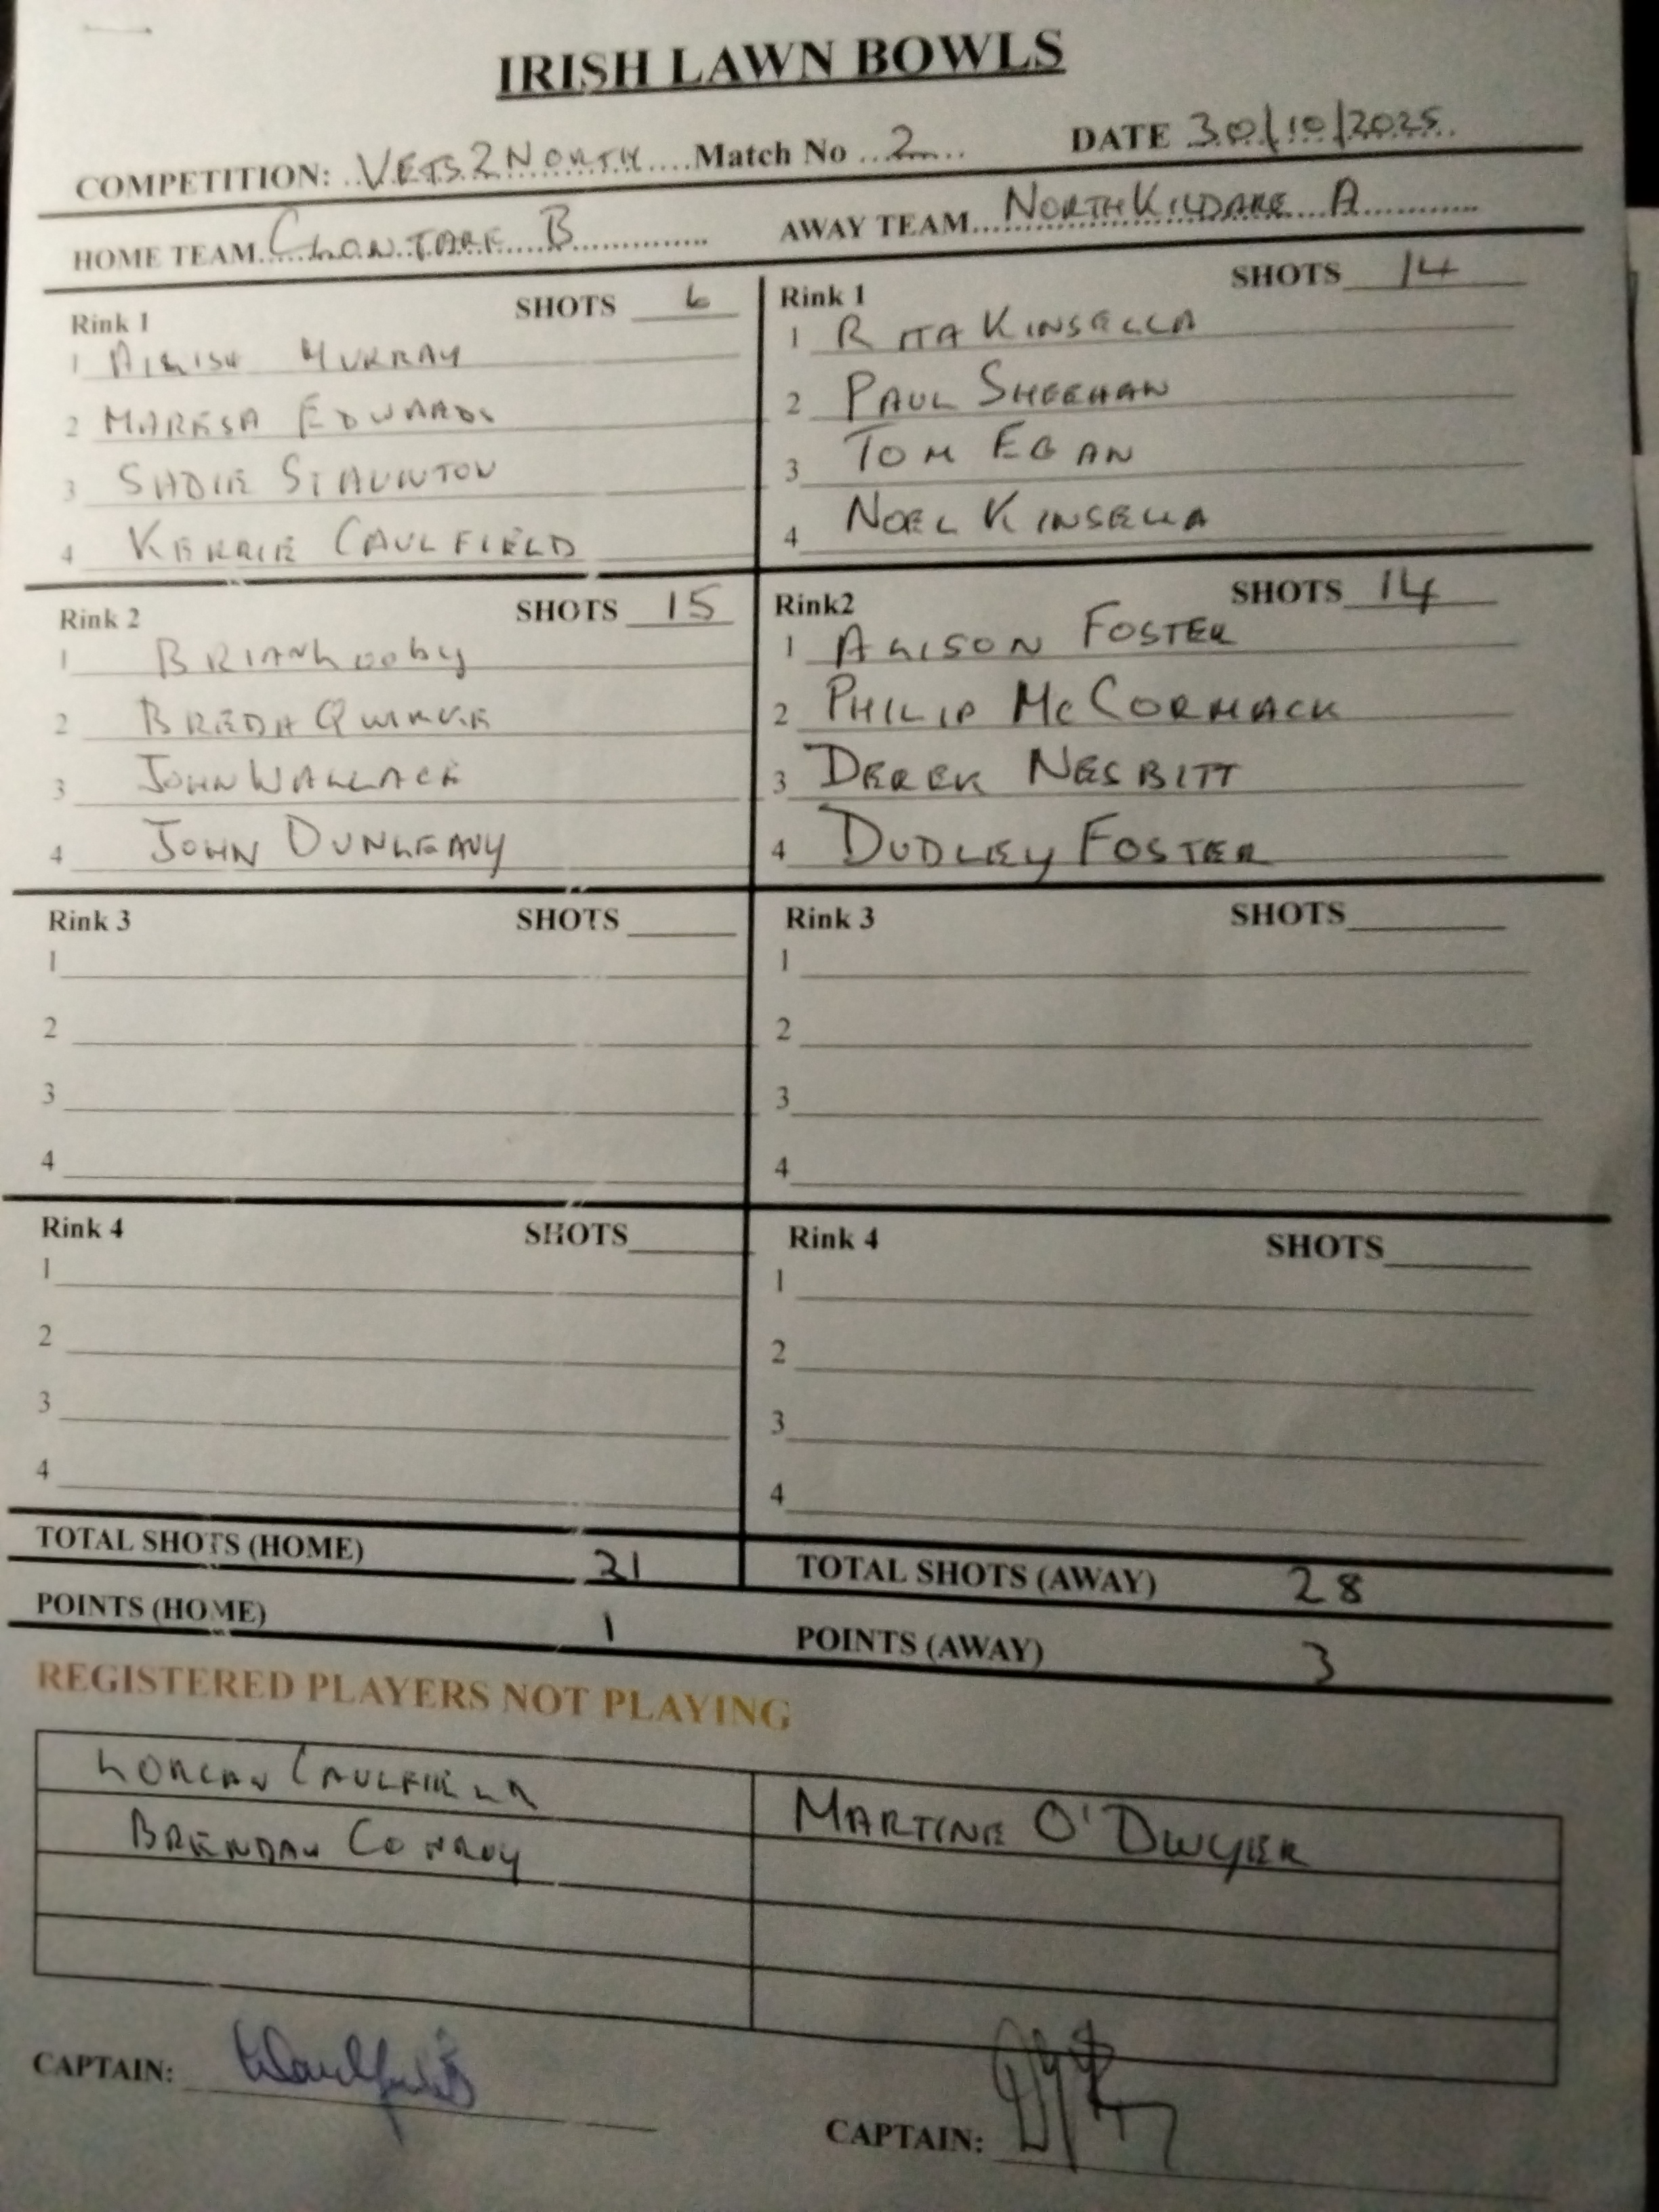 IRISH LAWN BOWLS
COMPETITION: VETS 2 NORTH Match No 2 DATE 30/10/2025
HOME TEAM CLONTARF B AWAY TEAM NORTH KILDARE A
Rink 1 SHOTS 6
1 AILISH MURRAY
2 MARESA EDWARDS
3 SADIE STAUNTON
4 KERRIE CAULFIELD
Rink 1 SHOTS 14
1 RITA KINSELLA
2 PAUL SHEEHAN
3 TOM EGAN
4 NOEL KINSELLA
Rink 2 SHOTS 15
1 BRIAN Looby
2 BREDA QUIRKE
3 JOHN WALLACE
4 JOHN DUNLEAVY
Rink2 SHOTS 14
1 ALISON FOSTER
2 PHILIP McCORMACK
3 DEREK NESBITT
4 DUDLEY FOSTER
Rink 3 SHOTS
1
2
3
4
Rink 3 SHOTS
1
2
3
4
Rink 4 SHOTS
1
2
3
4
Rink 4 SHOTS
1
2
3
4
TOTAL SHOTS (HOME) 21 TOTAL SHOTS (AWAY) 28
POINTS (HOME) 1 POINTS (AWAY) 3
REGISTERED PLAYERS NOT PLAYING
LORCAN CAULFIELD
BRENDAN CONROY
MARTINE O'DWYER
CAPTAIN:
CAPTAIN: